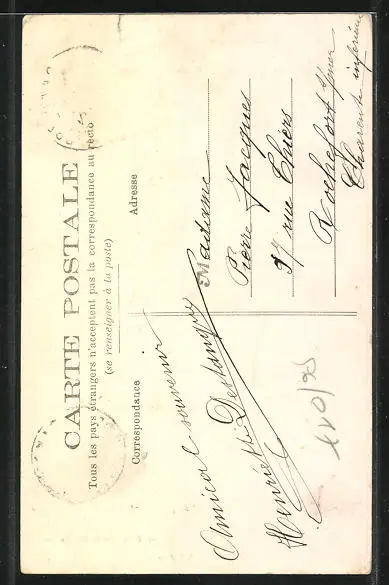 CARTE POSTALE
Tous les pays étrangers n'acceptent pas la correspondance au recto
(se renseigner à la poste)
Correspondance
Adresse
Amical souvenir
Henriette
Madame
Pierre Jacques
rue Thiers
Rochefort s/mer
Charente inférieure